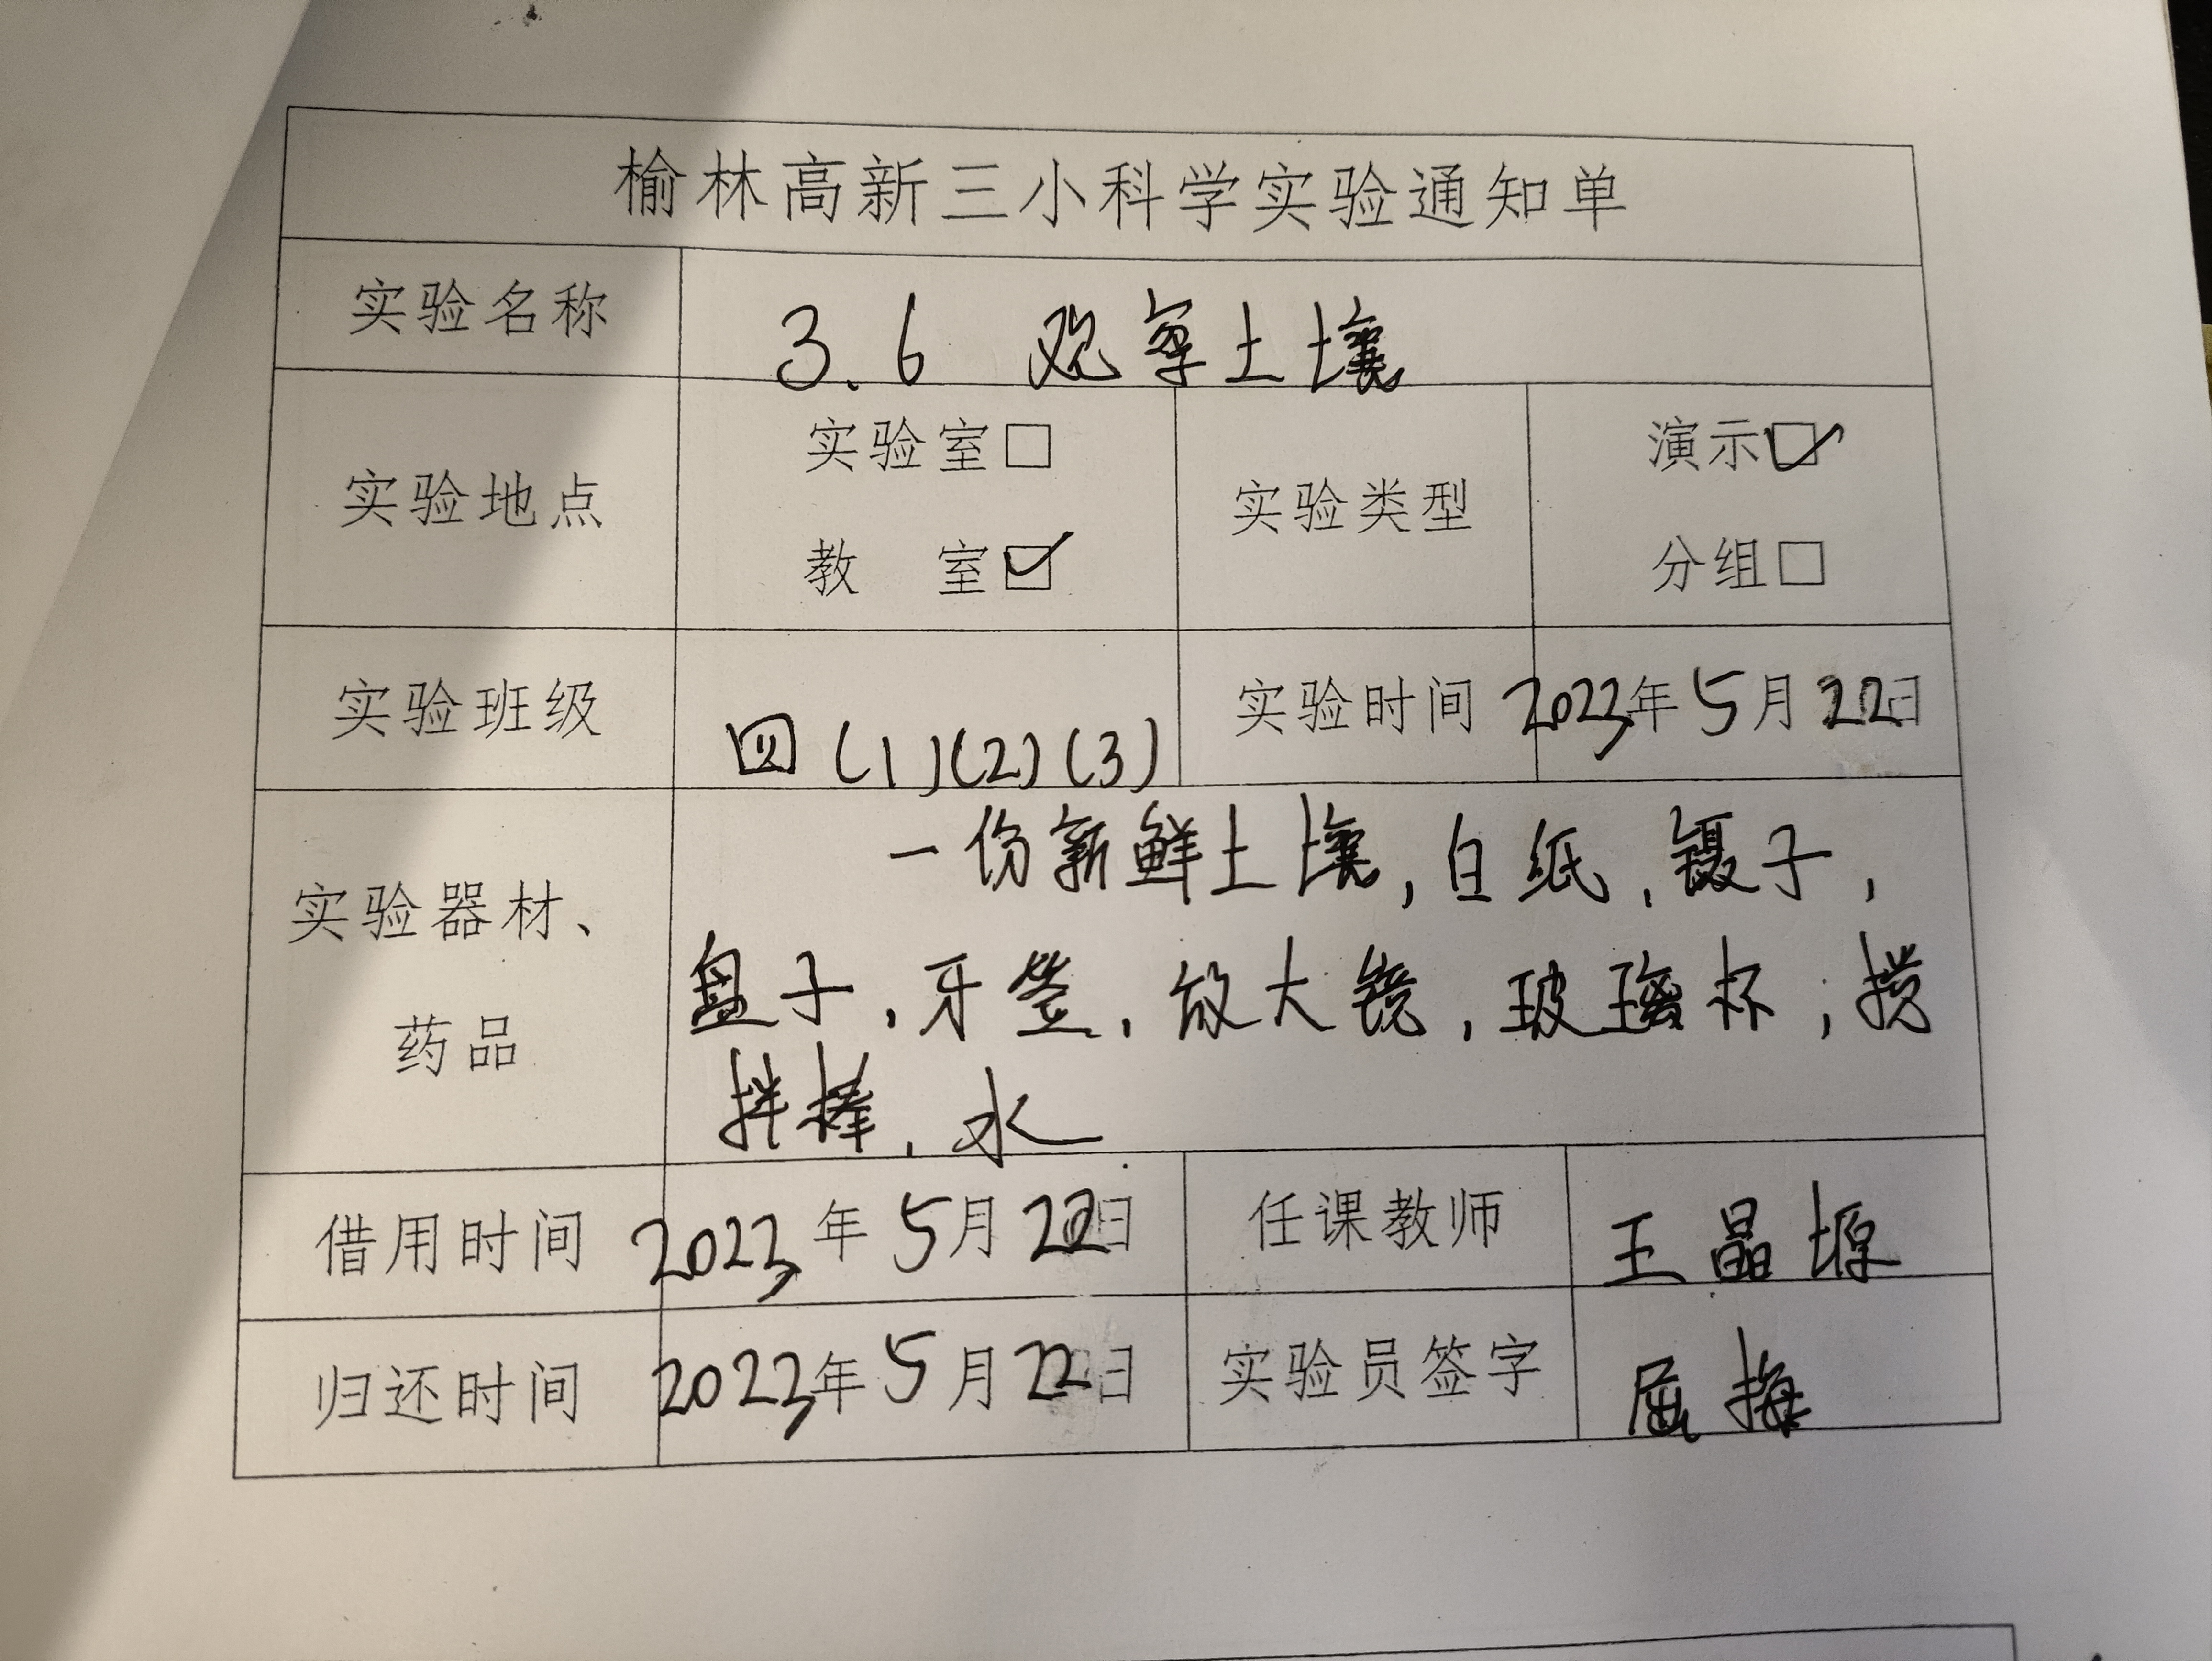 榆林高新三小科学实验通知单
实验名称 3.6 观察土壤
实验地点 实验室□ 教 室☑ 实验类型 演示☑ 分组□
实验班级 四(1)(2)(3) 实验时间 2023年5月22日
实验器材、药品
一份新鲜土壤,白纸,镊子,
盘子,牙签,放大镜,玻璃杯,搅
拌棒,水
借用时间 2023年5月22日 任课教师 王晶塬
归还时间 2023年5月22日 实验员签字 屈梅